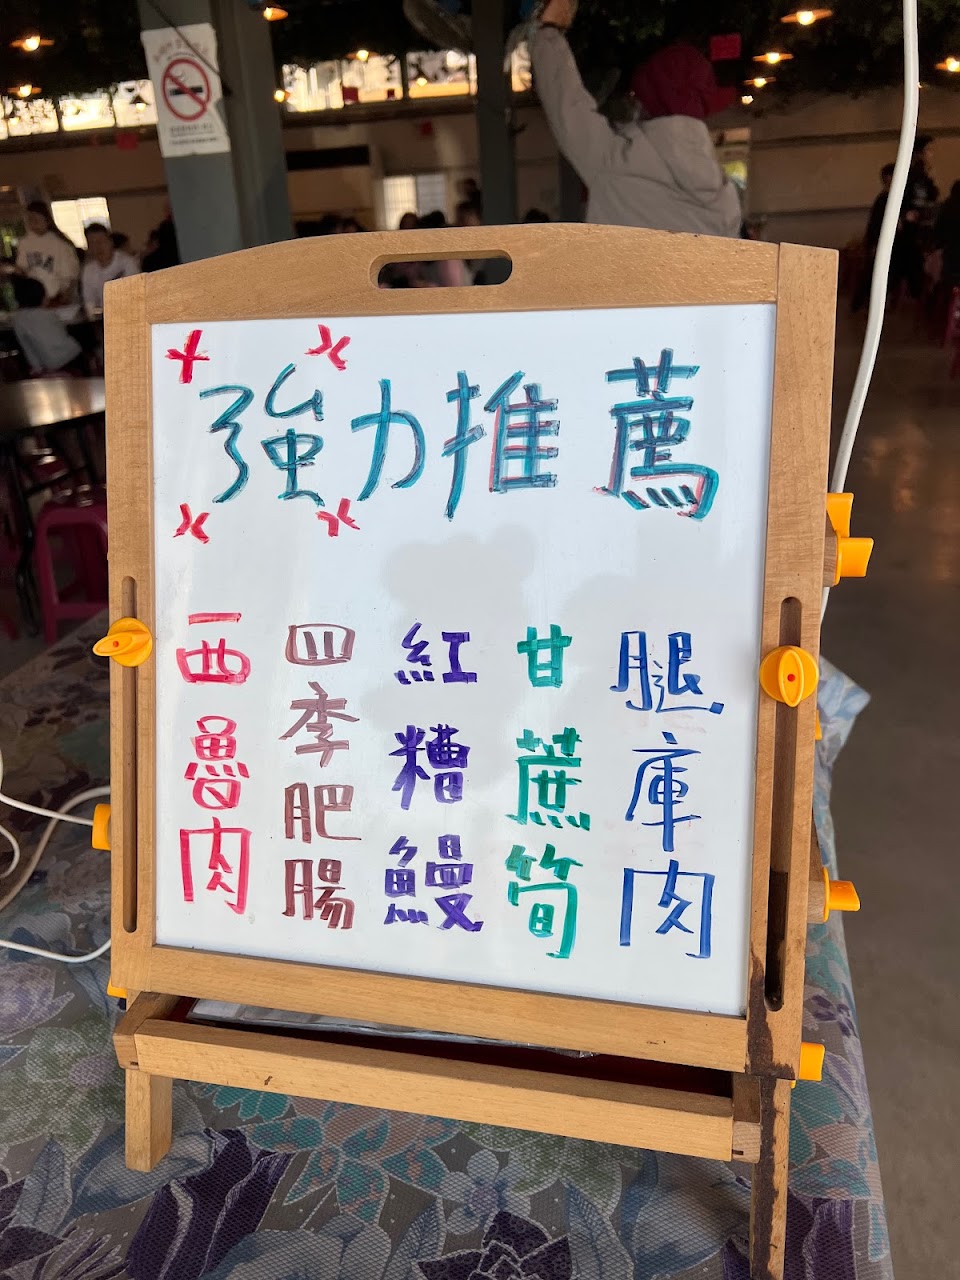 強力推薦
腿庫肉
甘蔗筍
紅糟鰻
四季肥腸
西魯肉